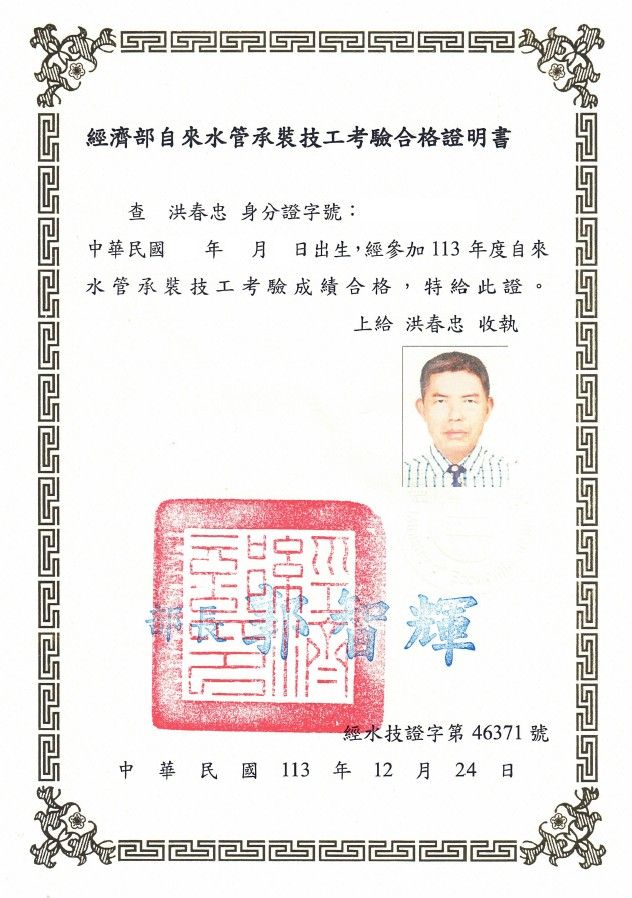 經濟部自來水管承裝技工考驗合格證明書
查 洪春忠 身分證字號：
中華民國 年 月 日出生，經參加 113 年度自來
水管承裝技工考驗成績合格，特給此證。
上給 洪春忠 收執
部長 郭智輝
經水技證字第 46371 號
中華民國 113 年 12 月 24 日